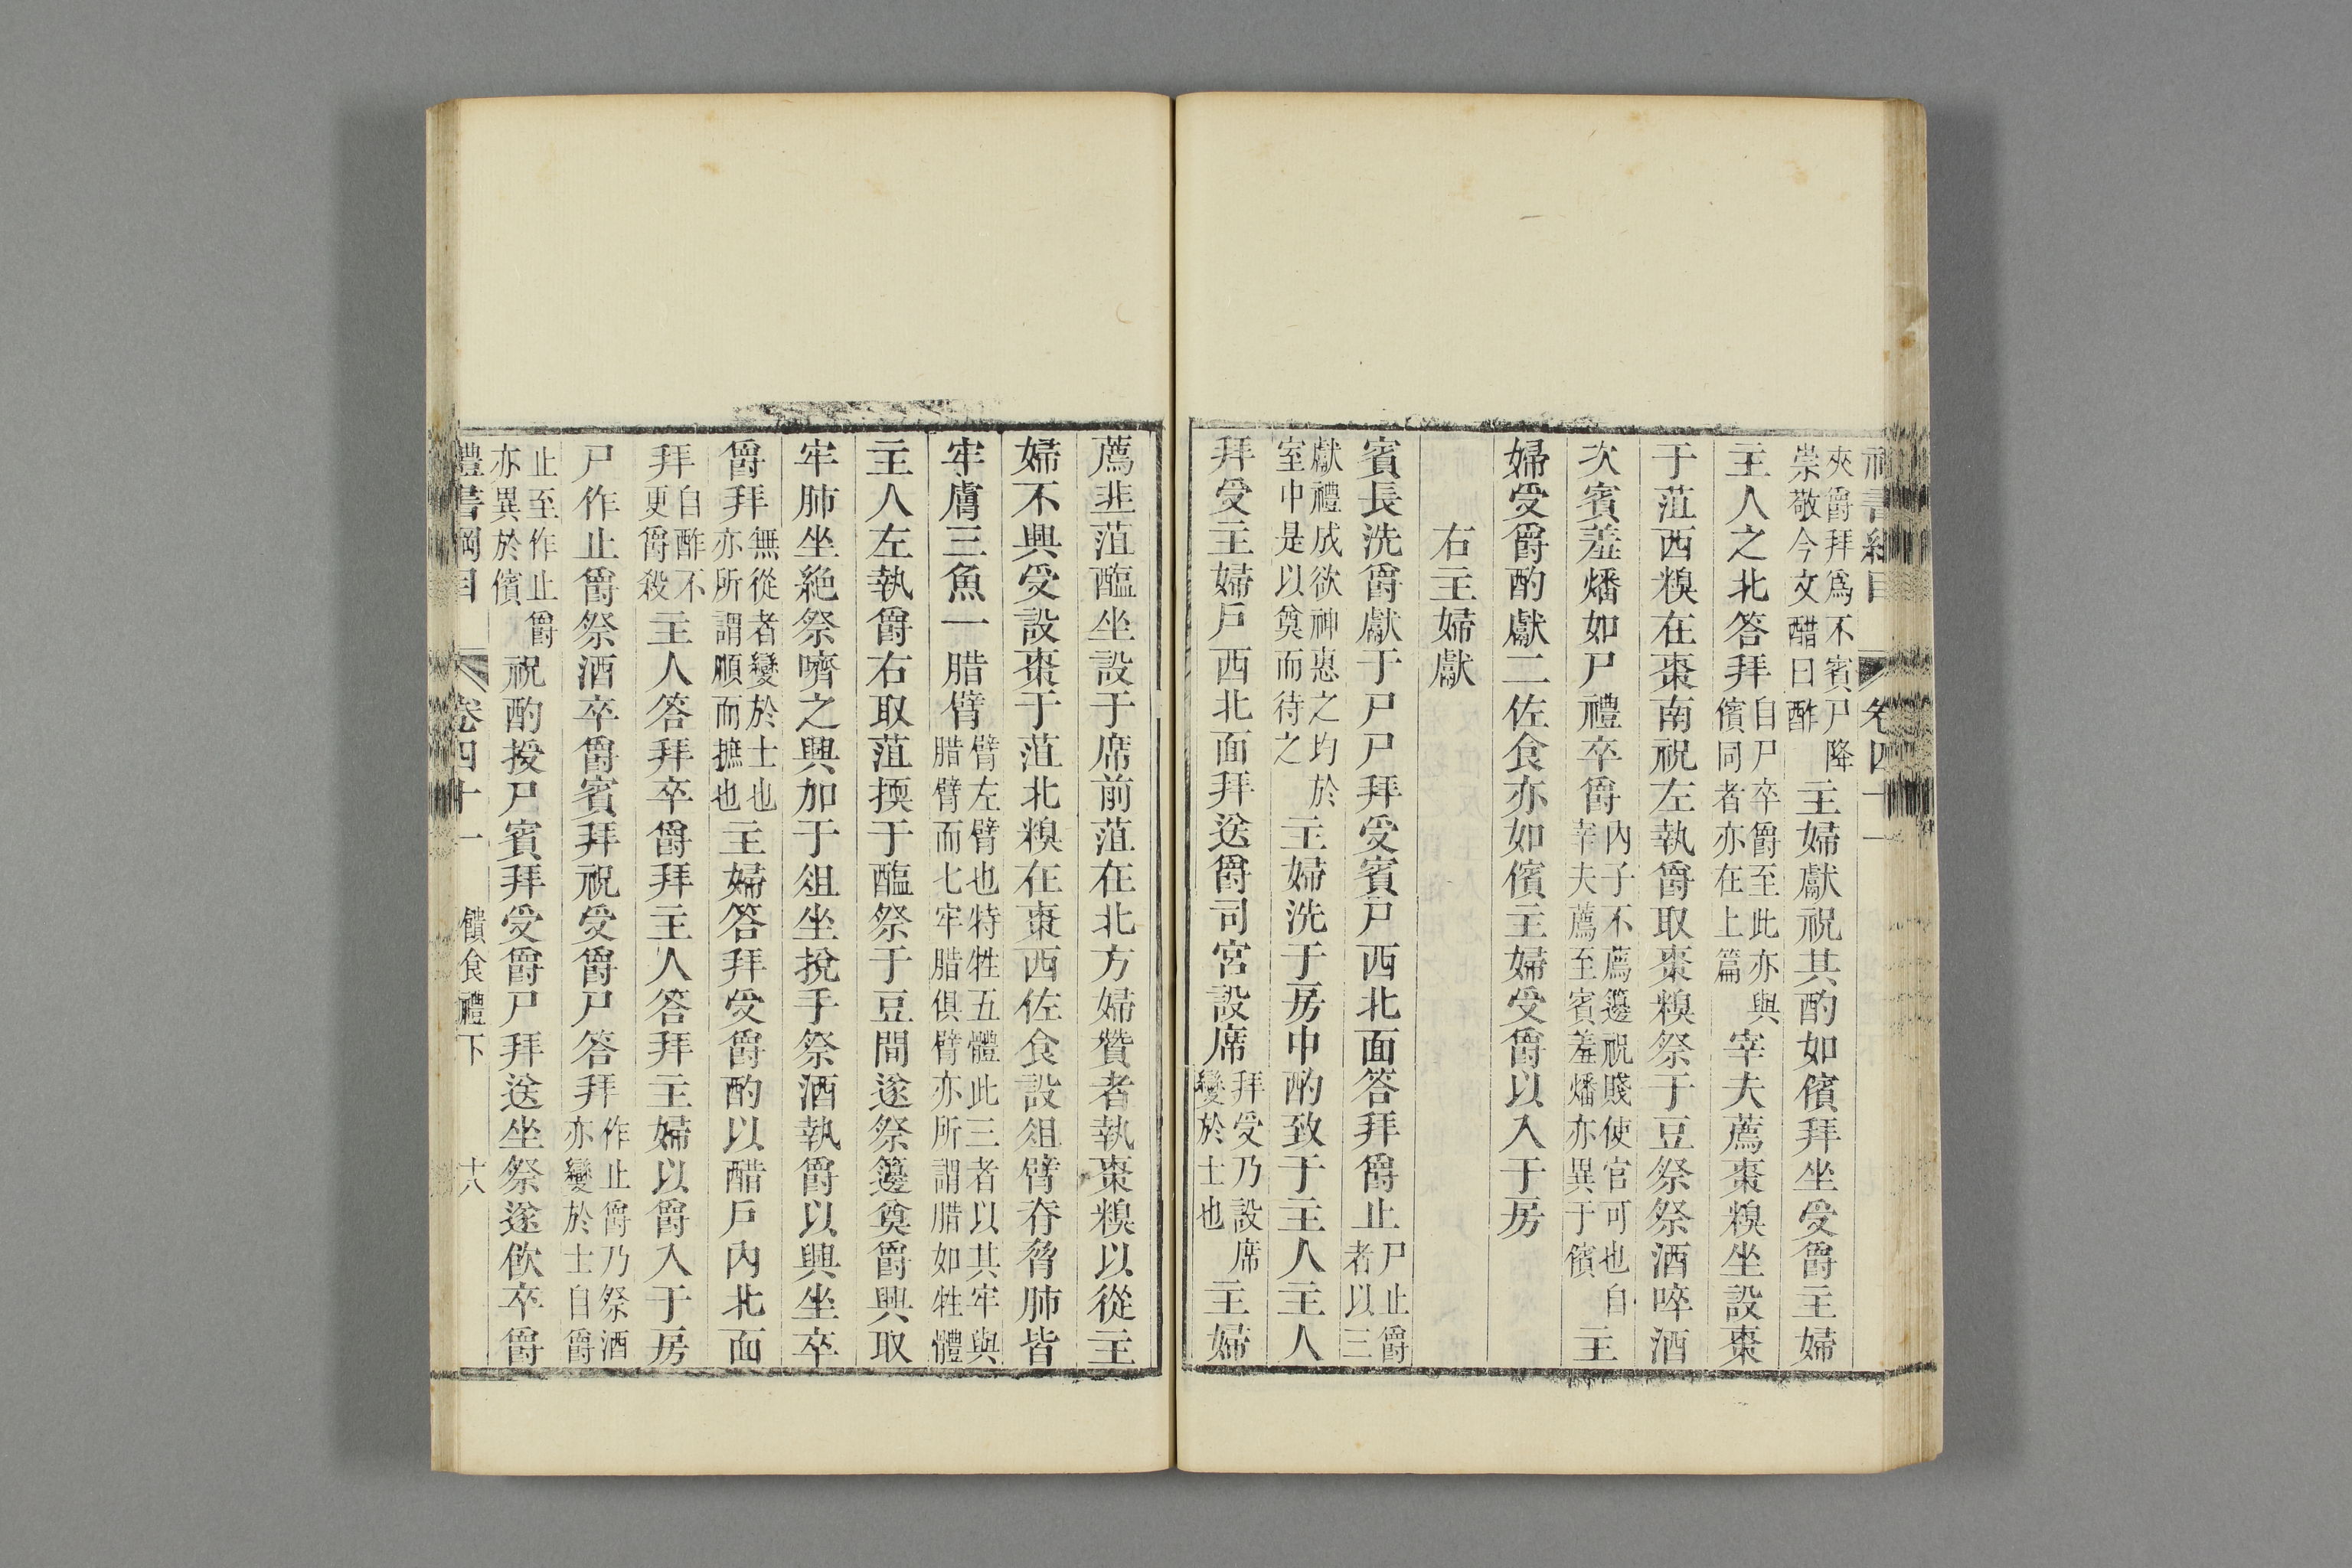 禮書綱目 卷四十一
夾爵拜爲不賓尸降崇敬今文醋曰酢主婦獻祝其酌如儐拜坐受爵主婦
主人之北答拜自尸卒爵至此亦與儐同者亦在上篇宰夫薦棗糗坐設棗
于菹西糗在棗南祝左執爵取棗糗祭于豆祭祭酒啐酒
次賓羞燔如尸禮卒爵內子不薦籩祝賤使官可也自宰夫薦至賓羞燔亦異于儐主
婦受爵酌獻二佐食亦如儐主婦受爵以入于房
右主婦獻
賓長洗爵獻于尸尸拜受賓戶西北面答拜爵止尸止爵者以三
獻禮成欲神惠之均於室中是以奠而待之主婦洗于房中酌致于主人主人
拜受主婦戶西北面拜送爵司宮設席拜受乃設席變於士也主婦
薦韭菹醢坐設于席前菹在北方婦贊者執棗糗以從主
婦不興受設棗于菹北糗在棗西佐食設俎臂脊脅肺皆
牢膚三魚一腊臂臂左臂也特牲五體此三者以其牢與腊臂而七牢腊俱臂亦所謂腊如牲體
主人左執爵右取菹擩于醢祭于豆間遂祭籩奠爵興取
牢肺坐絕祭嚌之興加于俎坐挩手祭酒執爵以興坐卒
爵拜無從者變於士也亦所謂順而摭也主婦答拜受爵酌以醋戶內北面
拜自酢不更爵殺主人答拜卒爵拜主人答拜主婦以爵入于房
尸作止爵祭酒卒爵賓拜祝受爵尸答拜作止爵乃祭酒亦變於士自爵
止至作止爵亦異於儐祝酌授尸賓拜受爵尸拜送坐祭遂飲卒爵
禮書綱目 卷四十一 饋食禮下 十八